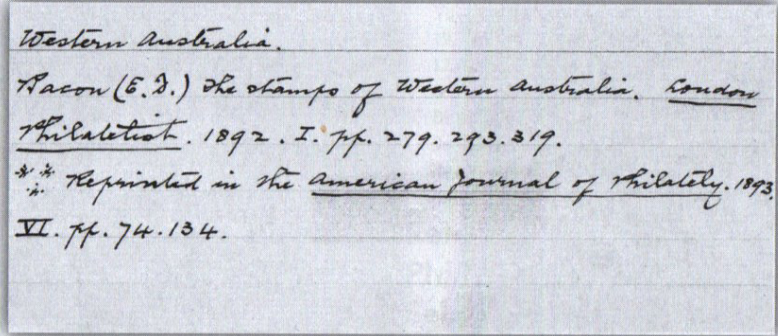 Western Australia.
Bacon (E.D.) The stamps of Western Australia. London
Philatelist. 1892. I. pp. 279. 293. 319.
⁂ Reprinted in the American Journal of Philately. 1893.
VI. pp. 74. 134.